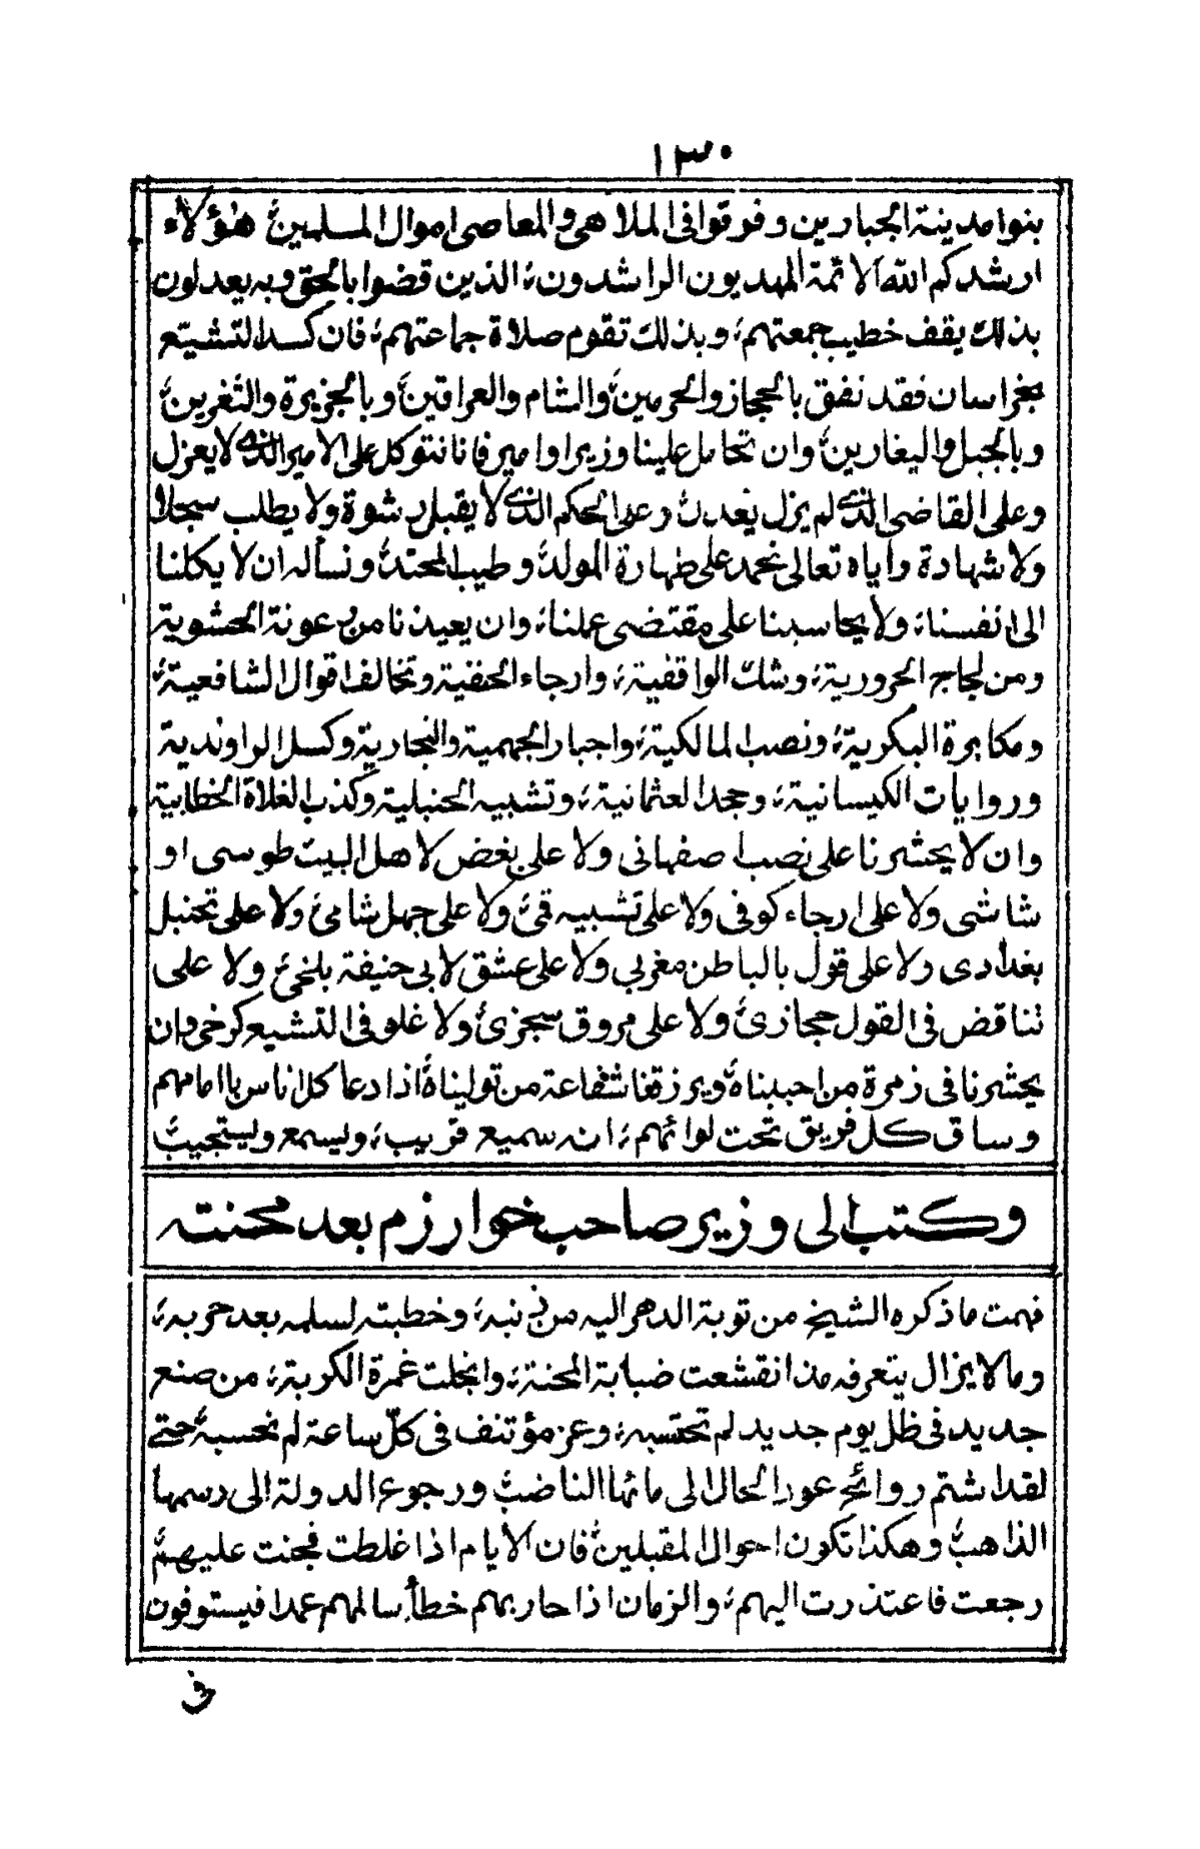 ١٣٠
بنوا مدينة الجبارين وفرقوا فى الملاهى والمعاصى اموال المسلمين، هؤلاء
ارشدكم الله الائمة المهديون الراشدون، الذين قضوا بالحق وبه يعدلون
بذلك يقف خطيب جمعتهم، وبذلك تقوم صلاة جماعتهم، فان كسد التشيع
بخراسان فقد نفق بالحجاز والحرمين، والشام والعراقين، وبالجزيرة والثغرين،
وبالجبل واليغارين، وان تحامل علينا وزيرا وامير فانا نتوكل على الامير الذى لا يعزل
وعلى القاضى الذى لم يزل يعدل، وعلى الحكم الذى لا يقبل رشوة ولا يطلب سجلا
ولا شهادة واياه تعالى نحمد على طهارة المولد، وطيب المحتد، ونسأله ان لا يكلنا
الى انفسنا، ولا يحاسبنا على مقتضى عملنا، وان يعيذنا من رعونة الحشوية
ومن لجاج الحرورية، وشك الواقفية، وارجاء الحنفية وتخالف اقوال الشافعية،
ومكابرة البكرية، ونصب المالكية، واجبار الجهمية والنجارية وكسل الراوندية
وروايات الكيسانية، وجحد العثمانية، وتشبيه الحنبلية وكذب الغلاة الخطابية
وان لا يحشرنا على نصب اصفهانى ولا على بغض لاهل البيت طوسى او
شاشى ولا على ارجاء كوفى ولا على تشبيه قمى، ولا على جهل شامى، ولا على تحنبل
بغدادى ولا على قول بالباطن مغربى ولا على عشق لابى حنيفة بلخى، ولا على
تناقض فى القول حجازى، ولا على مروق سجزى، ولا غلو فى التشيع كرخى وان
يحشرنا فى زمرة من احببناه، ويرزقنا شفاعة من توليناه، اذا دعا كل اناس بامامهم
وساق كل فريق تحت لوائهم، انه سميع قريب، ويسمع ويستجيب،
وكتب الى وزير صاحب خوارزم بعد محنته
فهمت ما ذكره الشيخ من توبة الدهر اليه من ذنبه، وخطبته لسلمه بعد حربه،
وما لا يزال يتعرفه مذ انقشعت ضبابة المحنة، وانجلت غمرة الكربة، من صنع
جديد فى ظل يوم جديد لم تحتسبه، وعز مؤتنف فى كلّ ساعة لم نحسبه، حتى
لقد اشتم روائح عود الحال الى مائها الناضب، ورجوع الدولة الى رسمها
الذاهب، وهكذا تكون احوال المقبلين، فان الايام اذا غلطت فجنت عليهم،
رجعت فاعتذرت اليهم، والزمان اذا حاربهم خطأ سالمهم عمدا فيستوفون
فى